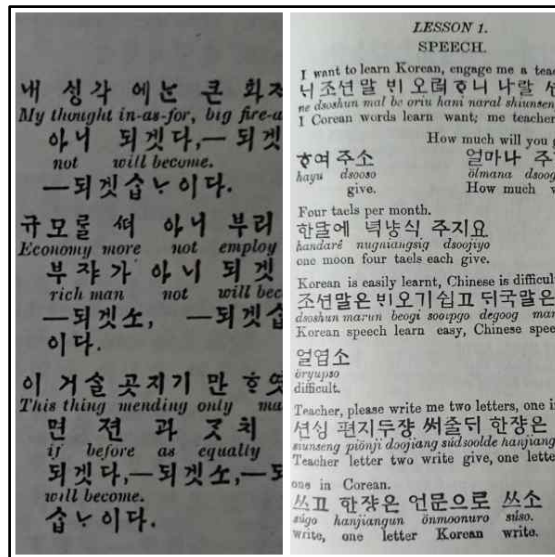 내 싱각 에는 큰 화
My thought in-as-for, big fire-a
아니 되겟다,—되겟
not will become.
—되겟습ᄂ이다.
규모를 써 아니 부리
Economy more not employ
부쟈가 아니 되겟
rich man not will bec
—되겟소, —되겟습
이다.
이 거슬 곳지기 만 ᄒ엿
This thing mending only ma
면 젼 과 ᄀᆺ치
if before as equally
되겟다,—되겟소,—되
will become.
습ᄂ이다.
LESSON 1.
SPEECH.
I want to learn Korean, engage me a teac
늬 조션말 빈 오려 ᄒ니 나랄
ne dsoshun mal be oriu hani naral shiunsen
I Corean words learn want; me teacher
How much will you g
ᄒ여 주소 얼마나 주
hayu dsooso ölmana dsoog
give. How much w
Four taels per month.
한달에 넉냥식 주지요
handaré nugniangsig dsoojiyo
one moon four taels each give.
Korean is easily learnt, Chinese is difficul
조션말은 빈오기 쉽고 듸국말은
dsoshun marun beogi sooipgo degoog mar
Korean speech learn easy, Chinese spee
얼엽소
öryupso
difficult.
Teacher, please write me two letters, one i
션싱 편지 두쟝 써줄듸 한쟝은
siunseng piönji doojiang südsoolde hanjiang
Teacher letter two write give, one lette
one in Corean.
쓰고 한쟝은 언문으로 쓰소
sügo hanjiangun önmoonuro süso.
write, one letter Korean write.